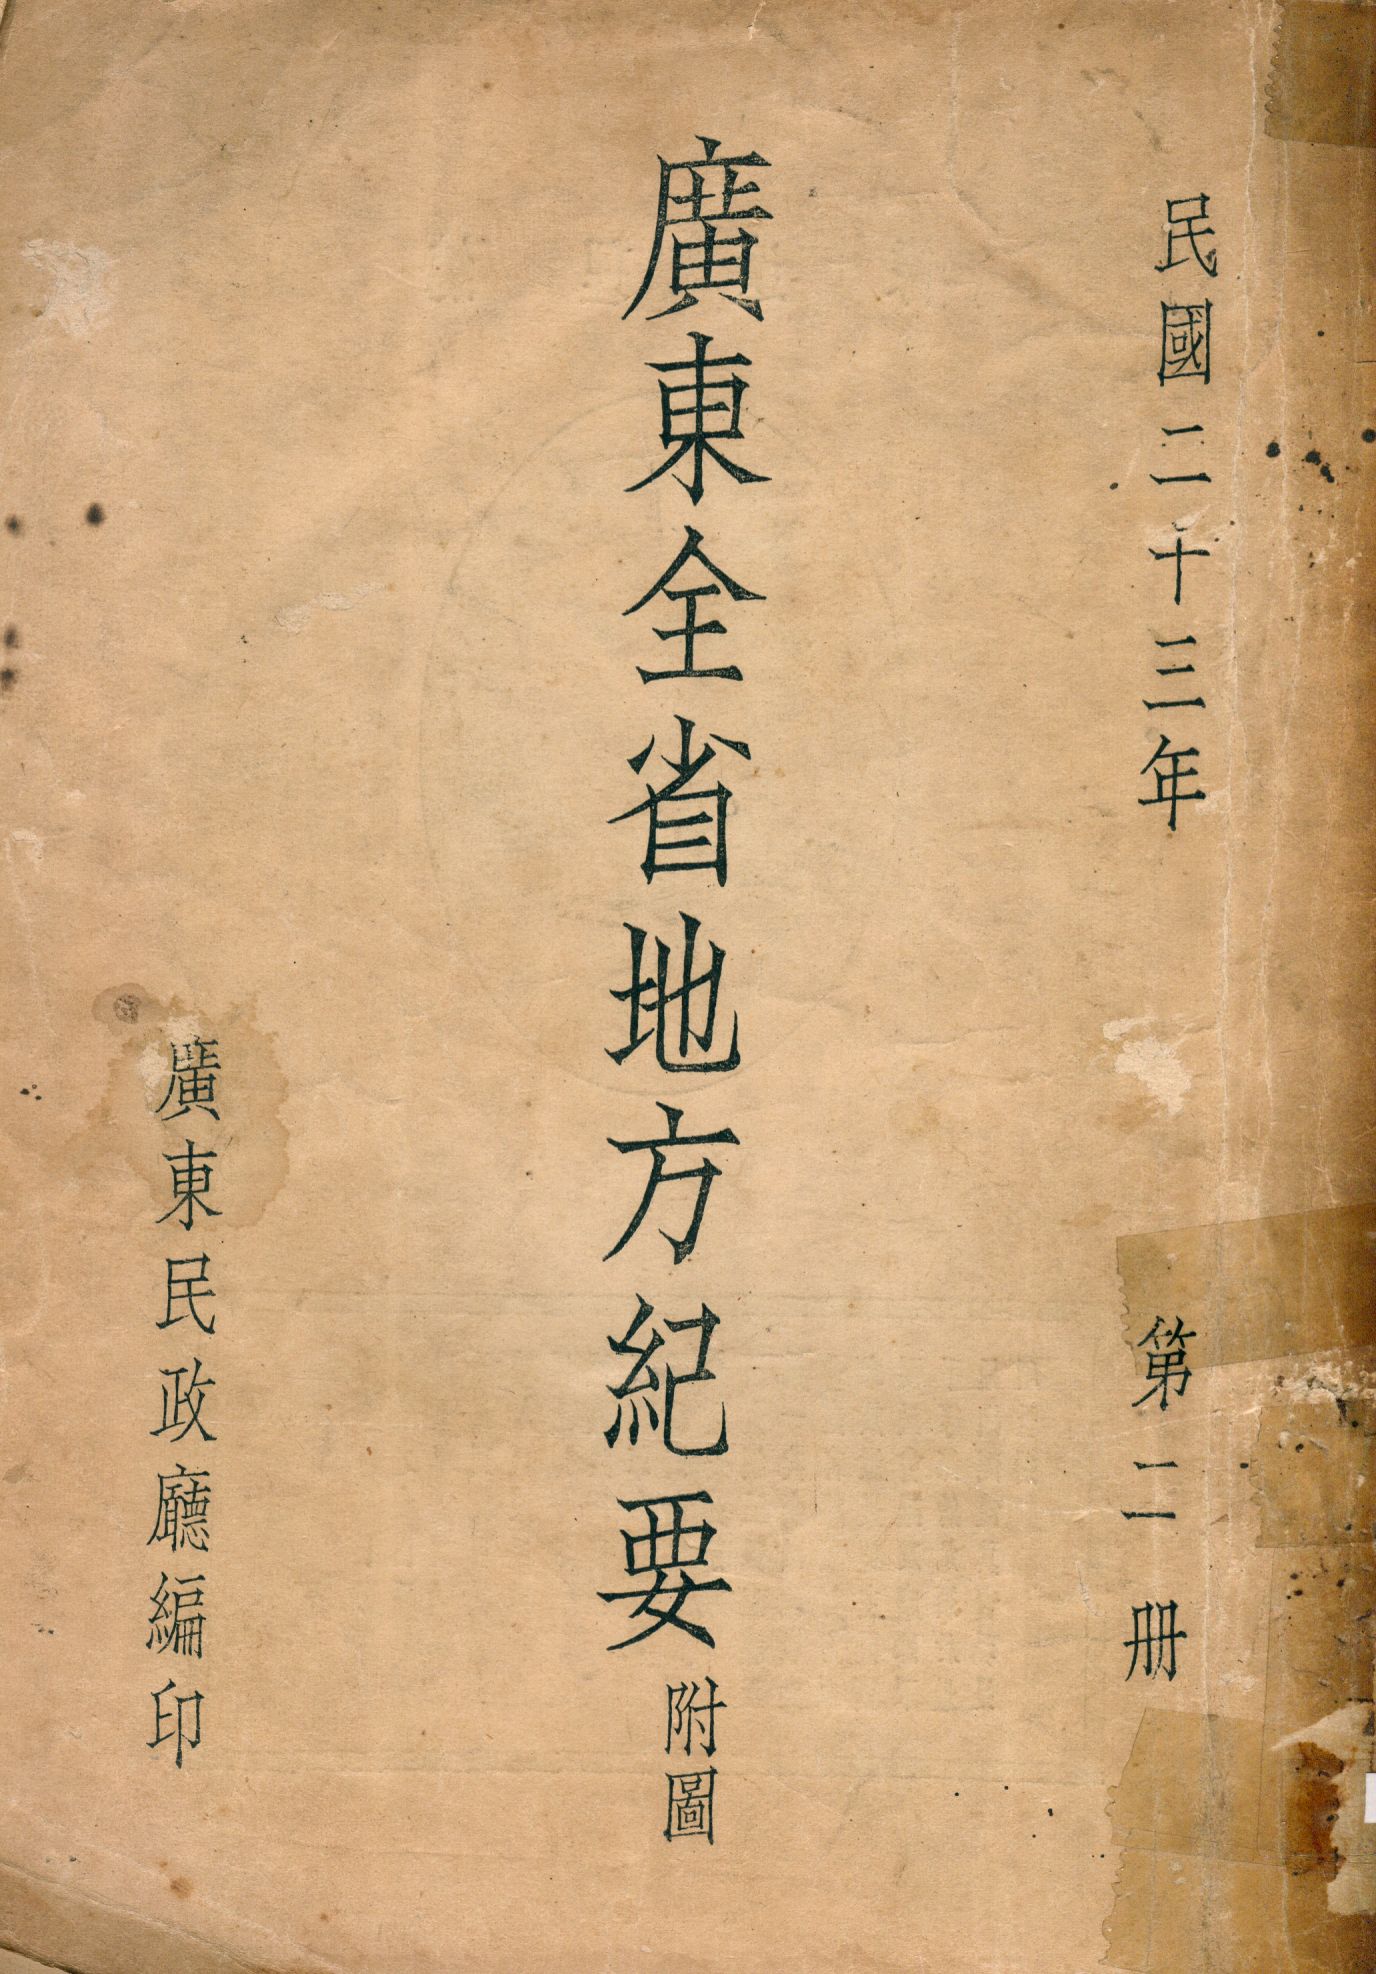 民國二十三年
第二册
廣東全省地方紀要
附圖
廣東民政廳編印